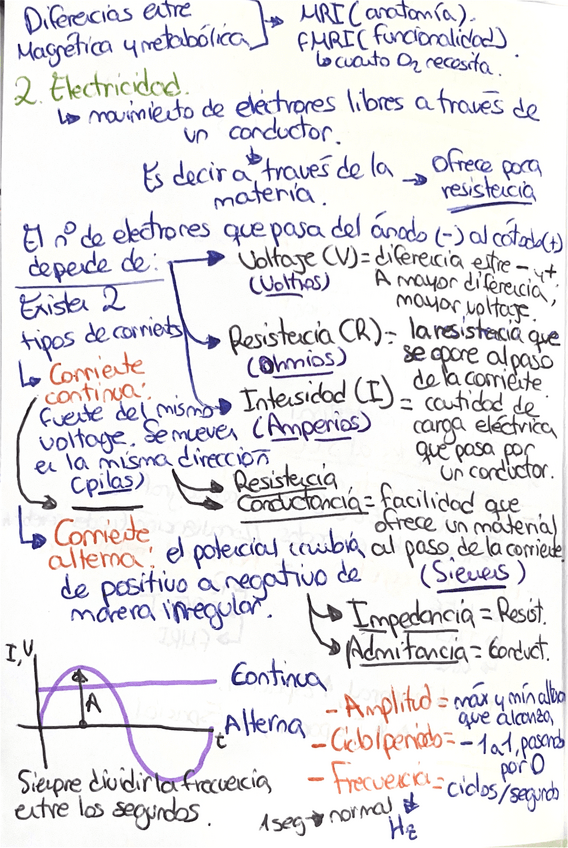 Diferencias entre
Magnética y metabólica
→ MRI (anatomía).
FMRI (funcionalidad)
↳ cuanto O₂ necesita.
2. Electricidad.
↳ movimiento de electrones libres a través de
un conductor.
Es decir a través de la
materia.
→ Ofrece poca
resistencia
El nº de electrones que pasa del ánodo (-) al cátodo (+)
depende de:
→ Voltage (V) = diferencia entre - y +.
(Volthios)
A mayor diferencia,
mayor voltage.
→ Resistencia (R) = la resistencia que
(Ohmios)
se opone al paso
de la corriente.
→ Intensidad (I) = cantidad de
(Amperios)
carga eléctrica
que pasa por
un conductor.
Existen 2
tipos de corrients
↳ Corriente
continua:
fuente del mismo
voltage. Se mueven
en la misma dirección
(pilas)
→ Resistencia
→ Conductancia = facilidad que
ofrece un material
al paso de la corriente.
(Siemens)
↳ Corriente
alterna: el potencial cambia
de positivo a negativo de
manera irregular.
→ Impedancia = Resist.
→ Admitancia = Conduct.
I, V
A
Continua
Alterna
t
- Amplitud = máx y mín altura
que alcanza,
- Ciclo/periodo = -1 a 1, pasando
por 0
- Frecuencia = ciclos/segundo
Hz
Siempre dividir la frecuencia
entre los segundos.
1seg → normal